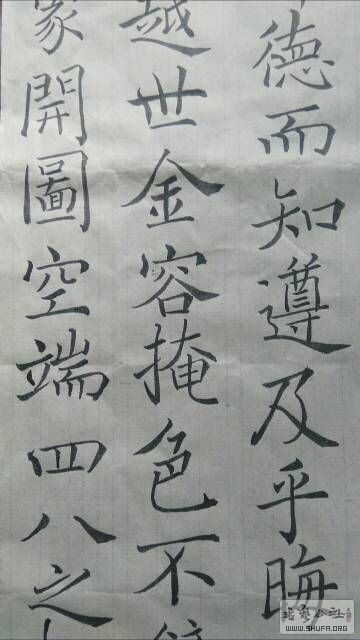 德而知遵及乎晦
越世金容掩色不
象開圖空端四八之
書藝公社
WWW.SHUFA.ORG